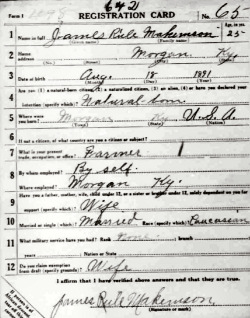 6421
Form 1 REGISTRATION CARD No. 65
1 Name in full James Rule Makemson Age, in yrs. 25
(Given name) (Family name)
2 Home address Morgan Ky.
(No.) (Street) (City) (State)
3 Date of birth Aug. 18 1891
(Month) (Day) (Year)
4 Are you (1) a natural-born citizen, (2) a naturalized citizen, (3) an alien, (4) or have you declared your
intention (specify which)? Natural born
5 Where were you born? Morgan Ky. U.S.A.
(Town) (State) (Nation)
6 If not a citizen, of what country are you a citizen or subject?
7 What is your present trade, occupation, or office? Farmer
8 By whom employed? By self
Where employed? Morgan Ky.
9 Have you a father, mother, wife, child under 12, or a sister or brother under 12, solely dependent on you for
support (specify which)? Wife
10 Married or single (which)? Married Race (specify which)? Caucasian
11 What military service have you had? Rank None branch
years Nation or State
12 Do you claim exemption from draft (specify grounds)? Wife
I affirm that I have verified above answers and that they are true.
James Rule Makemson
(Signature or mark)